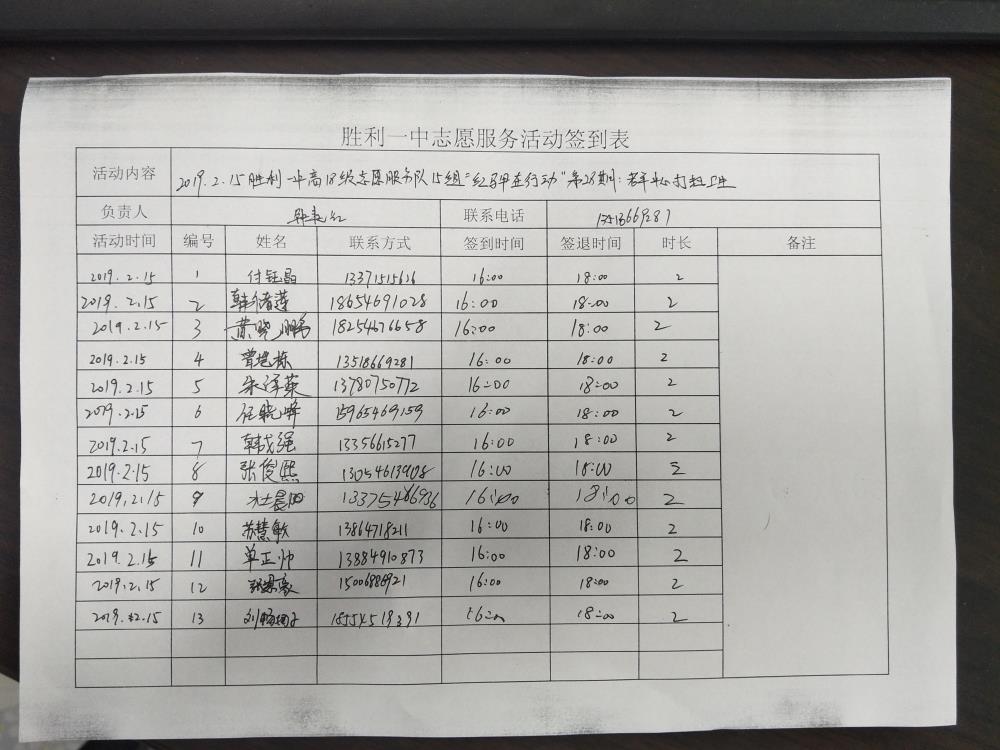 胜利一中志愿服务活动签到表
活动内容 2019.2.15胜利一中高18级志愿服务队15组"红马甲在行动"第28期:打扫卫生
负责人 联系电话
活动时间 编号 姓名 联系方式 签到时间 签退时间 时长 备注
2019.2.15 1 付钰晶 13371515626 16:00 18:00 2
2019.2.15 2 18654691028 16:00 18:00 2
2019.2.15 3 黄晓鹏 18254676658 16:00 18:00 2
2019.2.15 4 曾培栋 13518669281 16:00 18:00 2
2019.2.15 5 朱泽荣 13780750772 16:00 18:00 2
2019.2.15 6 任晓峰 15965469159 16:00 18:00 2
2019.2.15 7 韩成强 13356615277 16:00 18:00 2
2019.2.15 8 张俊熙 16:00 18:00 2
2019.2.15 9 杜晨阳 16:00 18:00 2
2019.2.15 10 苏慧敏 13864718211 16:00 18:00 2
2019.2.15 11 单正帅 13884910873 16:00 18:00 2
2019.2.15 12 16:00 18:00 2
2019.2.15 13 16:00 18:00 2